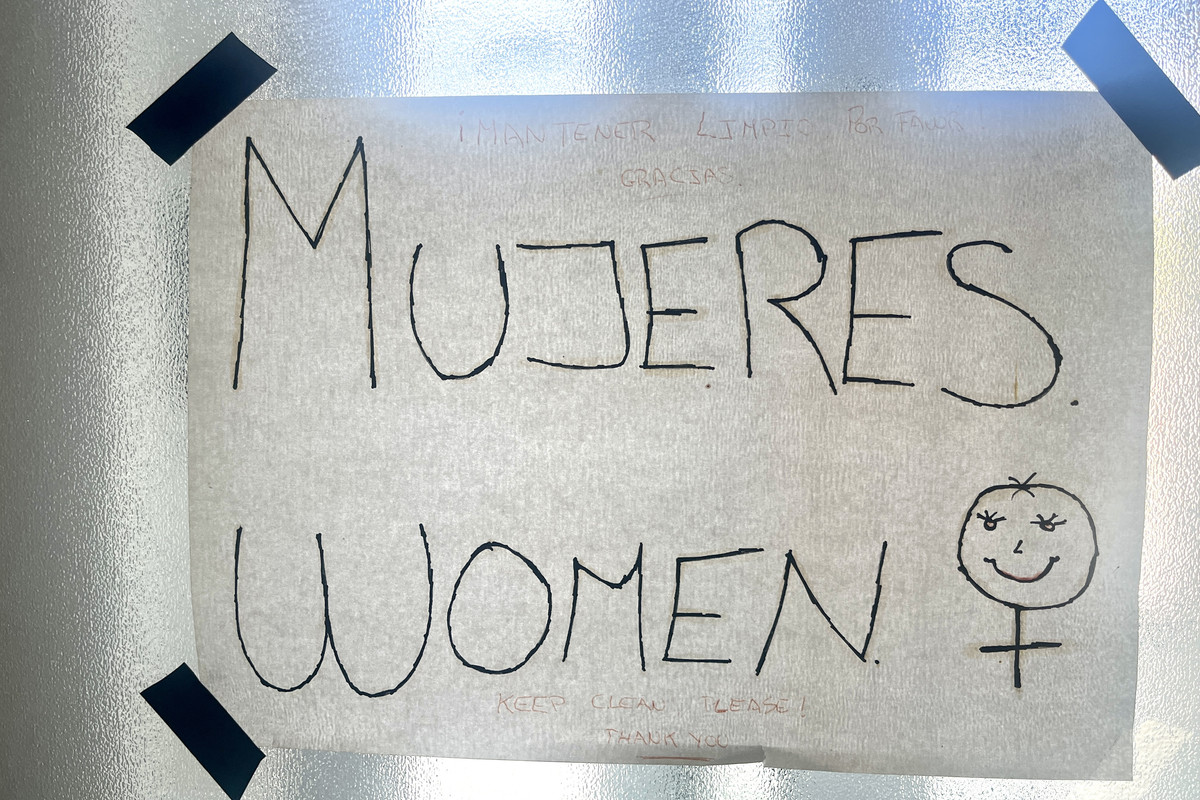 ¡MANTENER LIMPIO POR FAVOR
GRACIAS.
MUJERES.
WOMEN.
KEEP CLEAN PLEASE!
THANK YOU